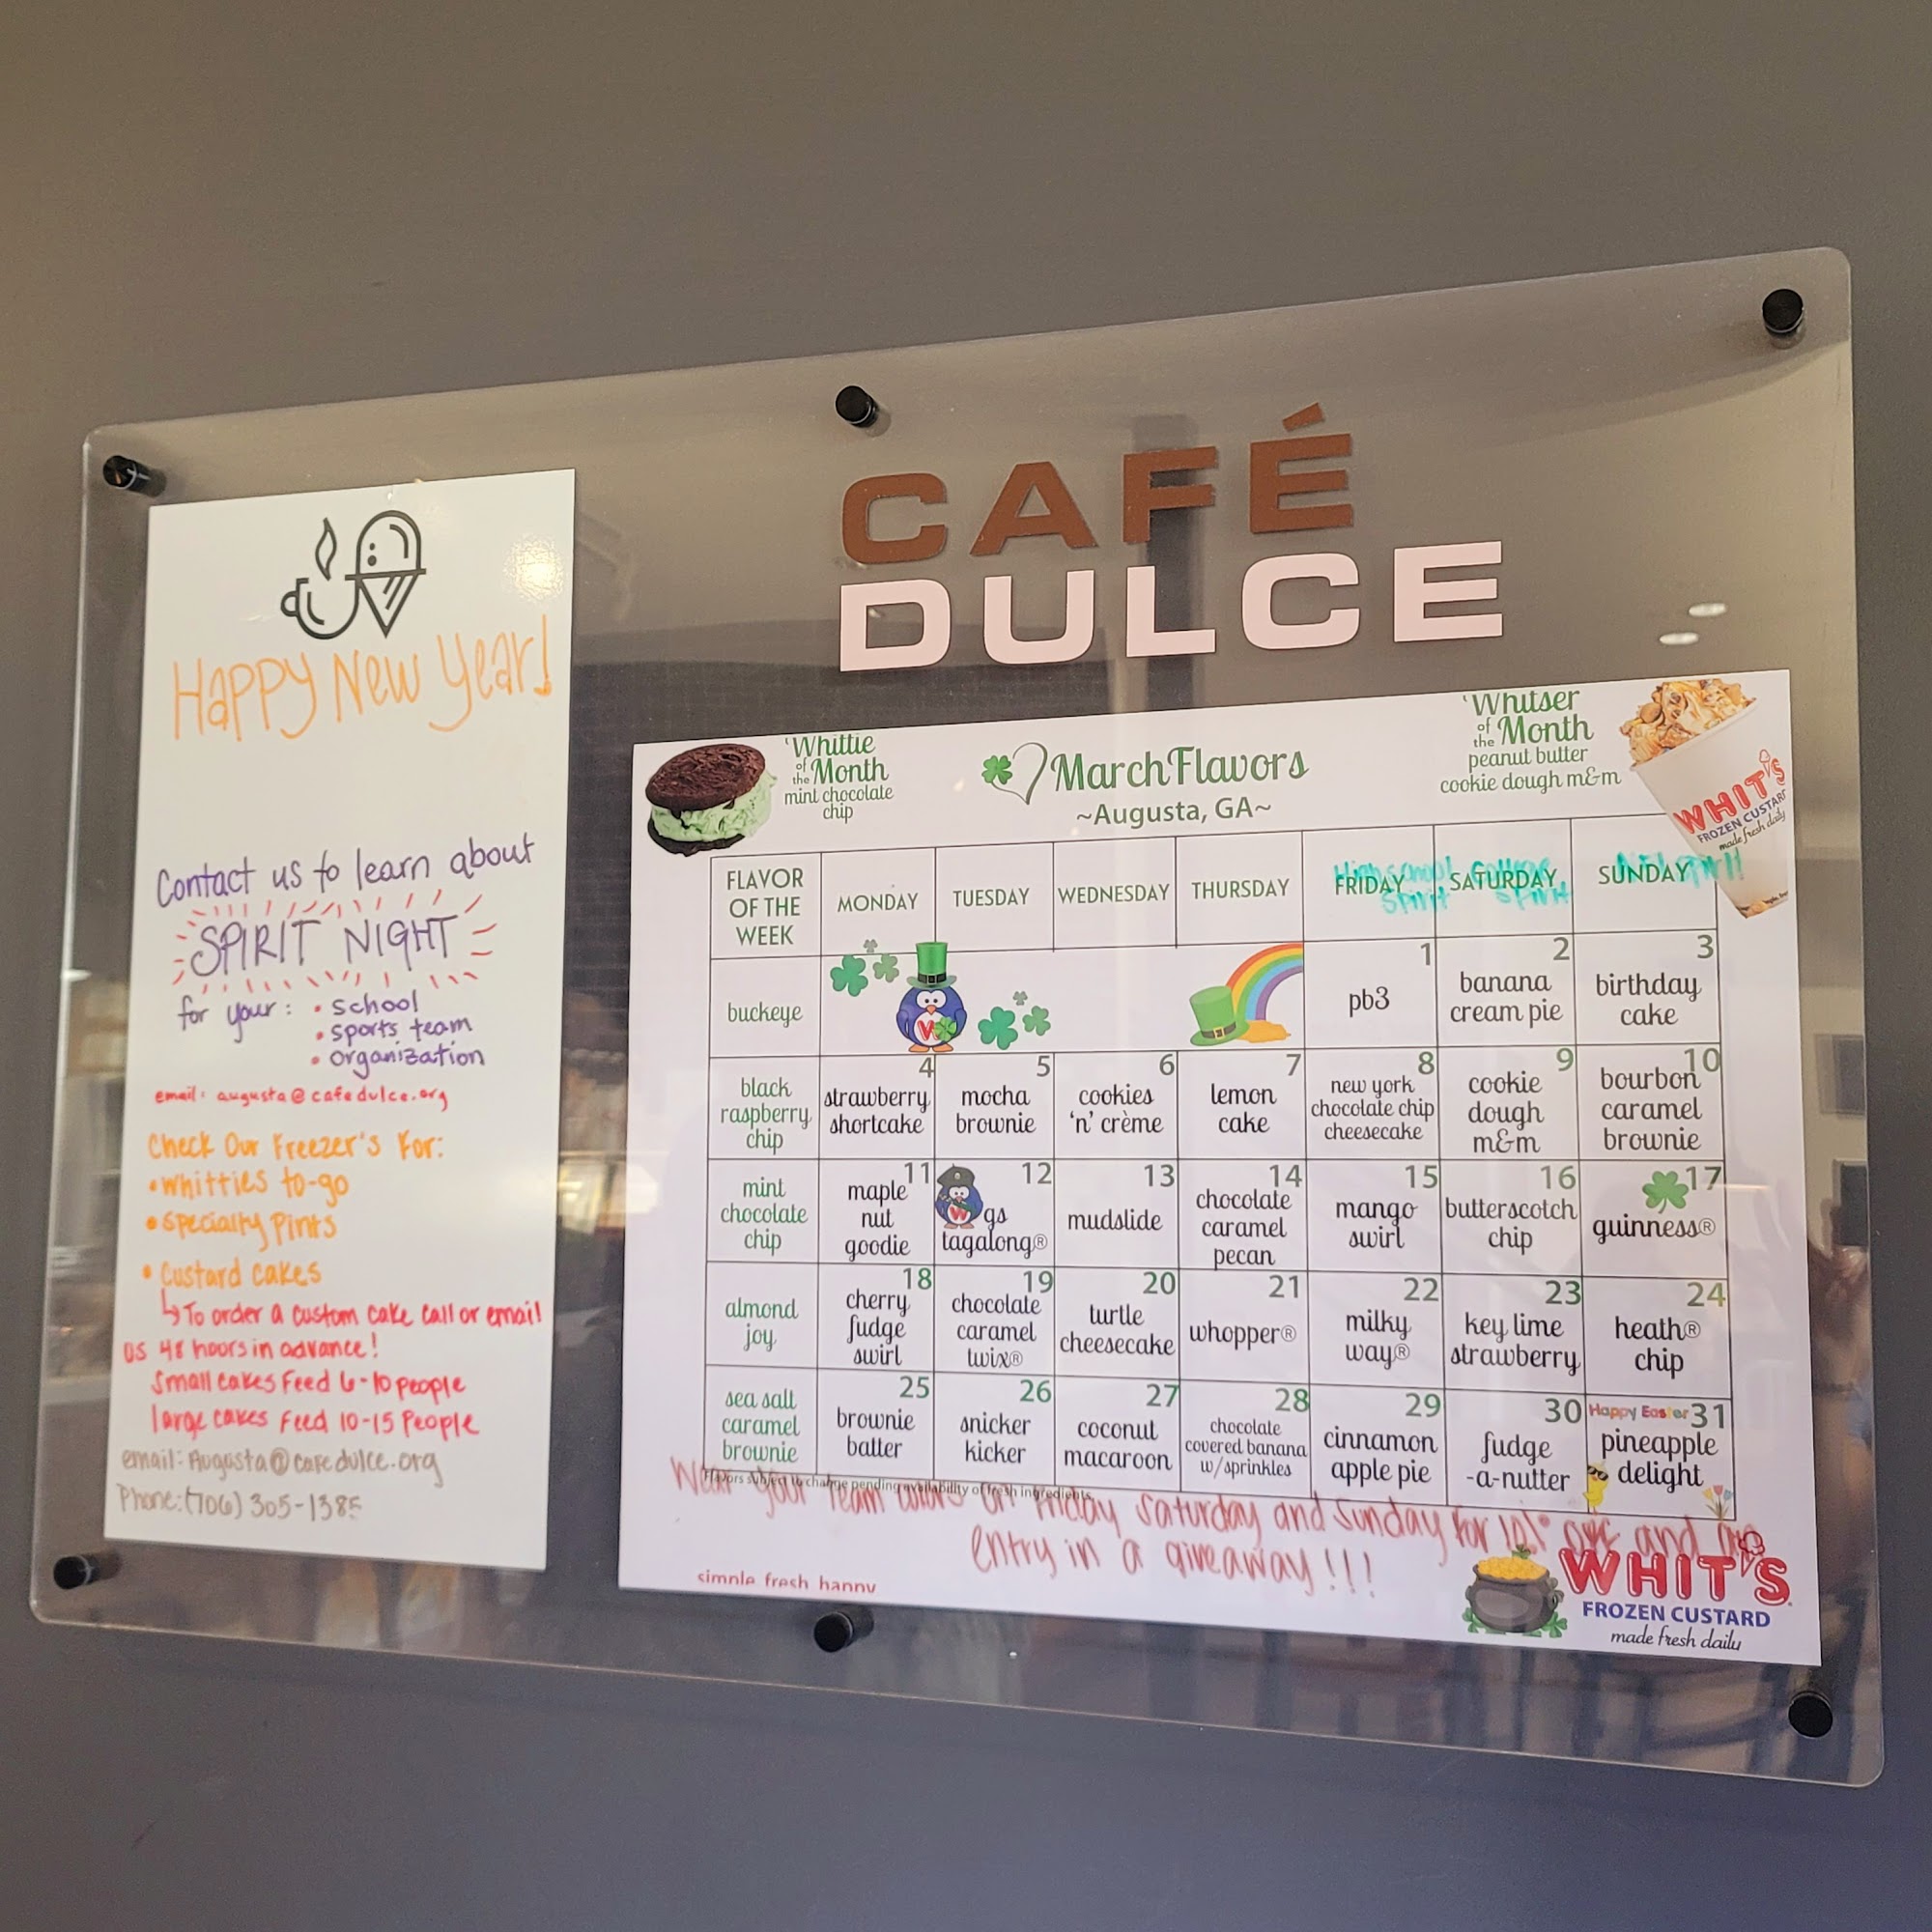 Happy New Year!
Contact us to learn about
SPIRIT NIGHT
for your: • school
• sports team
• organization
email: augusta@cafedulce.org
Check Our Freezer's For:
• Whitties to-go
• Specialty Pints
• Custard Cakes
↳ To order a custom cake call or email
us 48 hours in advance!
Small cakes Feed 6-10 people
large cakes Feed 10-15 People
email: Augusta@cafedulce.org
Phone: (706) 305-1385
CAFÉ
DULCE
'Whittie
of the Month
mint chocolate
chip
March Flavors
~Augusta, GA~
'Whitser
of the Month
peanut butter
cookie dough m&m
WHIT'S
FROZEN CUSTARD
made fresh daily
High school Spirit
College Spirit
FLAVOR OF THE WEEK
MONDAY
TUESDAY
WEDNESDAY
THURSDAY
FRIDAY
SATURDAY
SUNDAY
buckeye
1 pb3
2 banana cream pie
3 birthday cake
black raspberry chip
4 strawberry shortcake
5 mocha brownie
6 cookies 'n' crème
7 lemon cake
8 new york chocolate chip cheesecake
9 cookie dough m&m
10 bourbon caramel brownie
mint chocolate chip
11 maple nut goodie
12 gs tagalong®
13 mudslide
14 chocolate caramel pecan
15 mango swirl
16 butterscotch chip
17 guinness®
almond joy
18 cherry fudge swirl
19 chocolate caramel twix®
20 turtle cheesecake
21 whopper®
22 milky way®
23 key lime strawberry
24 heath® chip
sea salt caramel brownie
25 brownie batter
26 snicker kicker
27 coconut macaroon
28 chocolate covered banana w/sprinkles
29 cinnamon apple pie
30 fudge -a-nutter
Happy Easter 31 pineapple delight
Flavors subject to change pending availability of fresh ingredients
Wear your team colors on Friday Saturday and Sunday for 10% off and
entry in a giveaway!!!
simple fresh happy
WHIT'S
FROZEN CUSTARD
made fresh daily